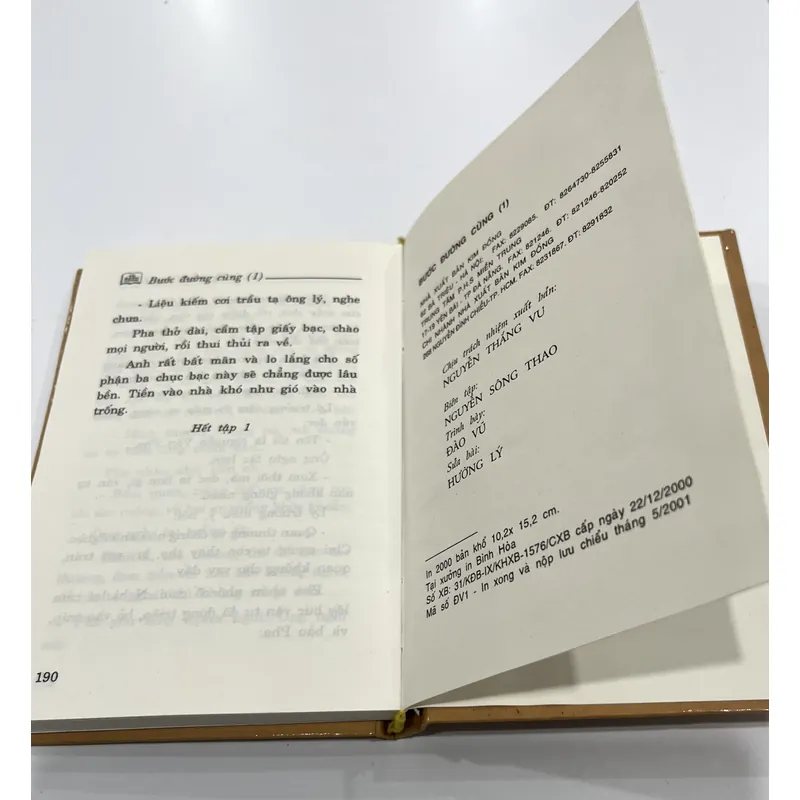 Bước đường cùng (1)
- Liệu kiếm cơi trầu tạ ông lý, nghe
chưa.
Pha thở dài, cầm tập giấy bạc, chào
mọi người, rồi thui thủi ra về.
Anh rất bất mãn và lo lắng cho số
phận ba chục bạc này sẽ chẳng được lâu
bền. Tiền vào nhà khó như gió vào nhà
trống.
Hết tập 1
190
BƯỚC ĐƯỜNG CÙNG (1)
NHÀ XUẤT BẢN KIM ĐỒNG
62 BÀ TRIỆU - HÀ NỘI. FAX: 8229085. ĐT: 8264730-8255831
TRUNG TÂM P.H.S MIỀN TRUNG
17-19 YÊN BÁI - TP ĐÀ NẴNG. FAX: 821246. ĐT: 821246-820252
CHI NHÁNH NHÀ XUẤT BẢN KIM ĐỒNG
268 NGUYỄN ĐÌNH CHIỂU. TP. HCM. FAX: 8231867. ĐT: 8291832
Chịu trách nhiệm xuất bản:
NGUYỄN THẮNG VU
Biên tập:
NGUYỄN SÔNG THAO
Trình bày:
ĐÀO VŨ
Sửa bài:
HƯƠNG LÝ
In 2000 bản khổ 10,2x 15,2 cm.
Tại xưởng in Bình Hòa
Số XB: 31/KĐB-IX/KHXB-1576/CXB cấp ngày 22/12/2000
Mã số ĐV1 - In xong và nộp lưu chiểu tháng 5/2001